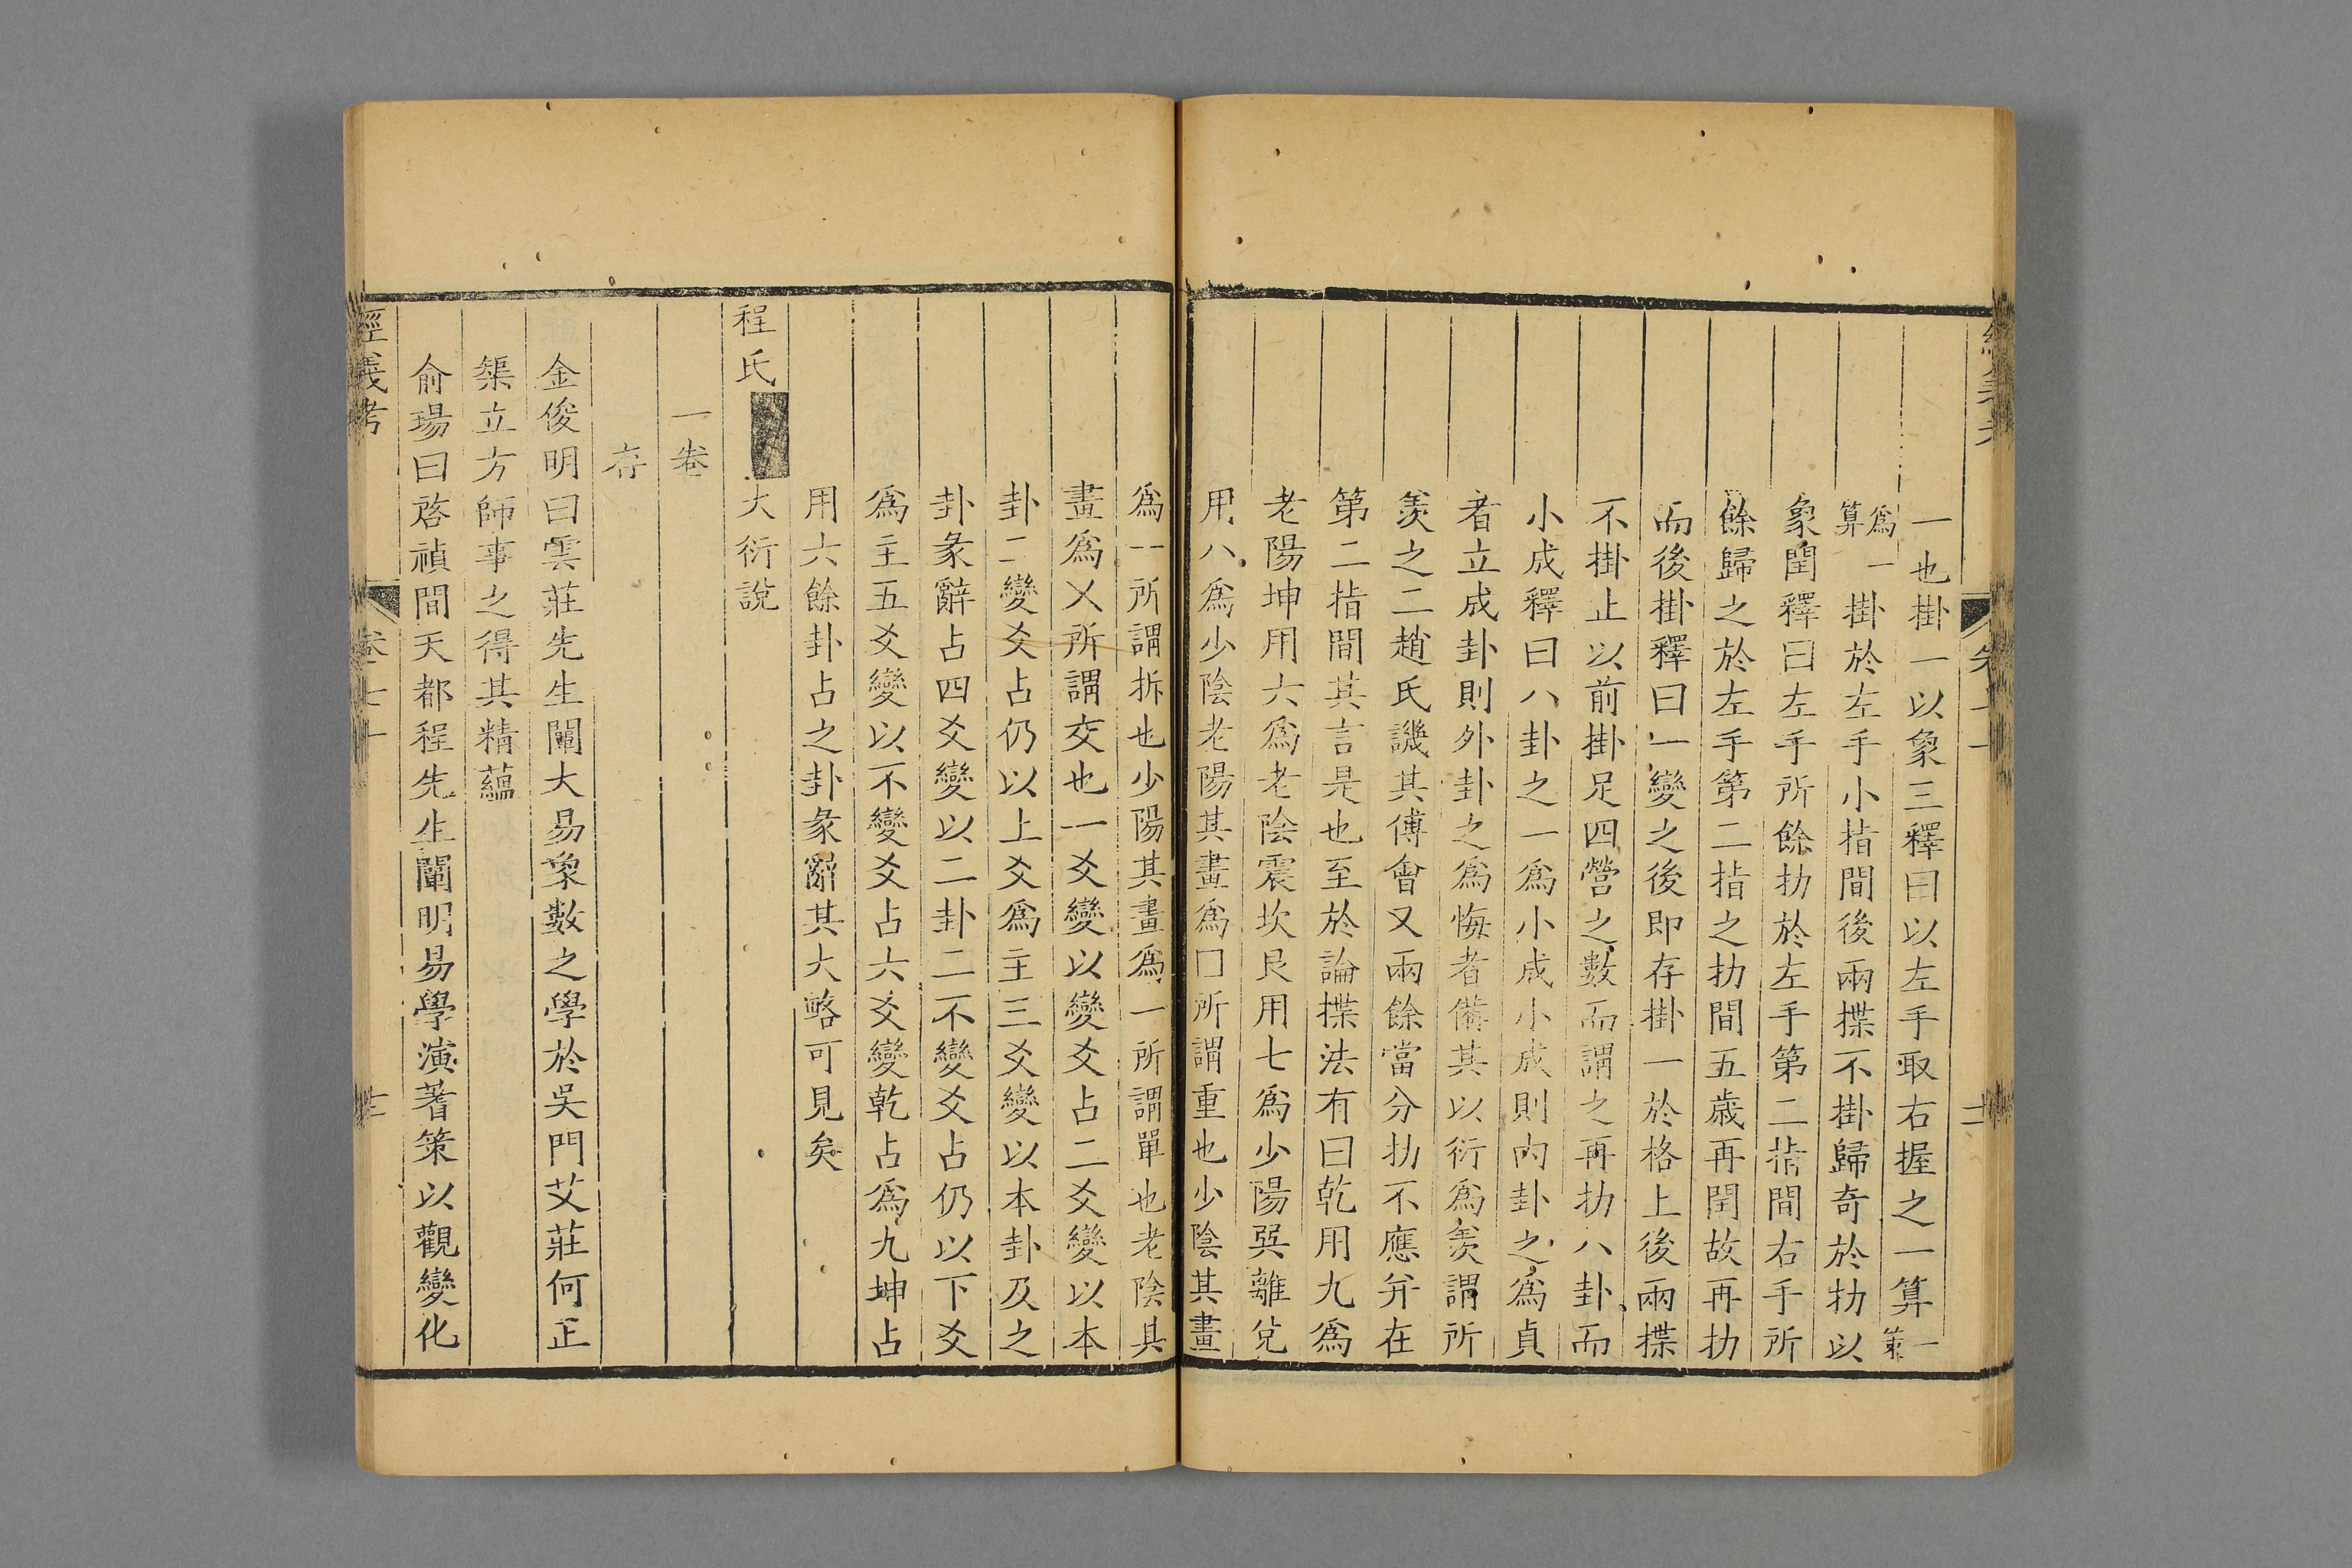 一也掛一以象三釋曰以左手取右握之一算一策
爲一算掛於左手小指間後兩揲不掛歸奇於扐以
象閏釋曰左手所餘扐於左手第二指間右手所
餘歸之於左手第二指之扐間五歲再閏故再扐
而後掛釋曰一變之後即存掛一於格上後兩揲
不掛止以前掛足四營之數而謂之再扐八卦而
小成釋曰八卦之一爲小成小成則內卦之爲貞
者立成卦則外卦之爲悔者備其以衍爲羨謂所
羨之二趙氏譏其傅會又兩餘當分扐不應并在
第二指間其言是也至於論揲法有曰乾用九爲
老陽坤用六爲老陰震坎艮用七爲少陽巽離兌
用八爲少陰老陽其畫爲囗所謂重也少陰其畫
爲一所謂拆也少陽其畫爲一所謂單也老陰其
畫爲乂所謂交也一爻變以變爻占二爻變以本
卦二變爻占仍以上爻爲主三爻變以本卦及之
卦彖辭占四爻變以二卦二不變爻占仍以下爻
爲主五爻變以不變爻占六爻變乾占爲九坤占
用六餘卦占之卦彖辭其大略可見矣
程氏大衍說
一卷
存
金俊明曰雲莊先生闡大易象數之學於吳門艾莊何正
榘立方師事之得其精蘊
俞瑒曰啓禎間天都程先生闡明易學演蓍策以觀變化
經義考 卷七十